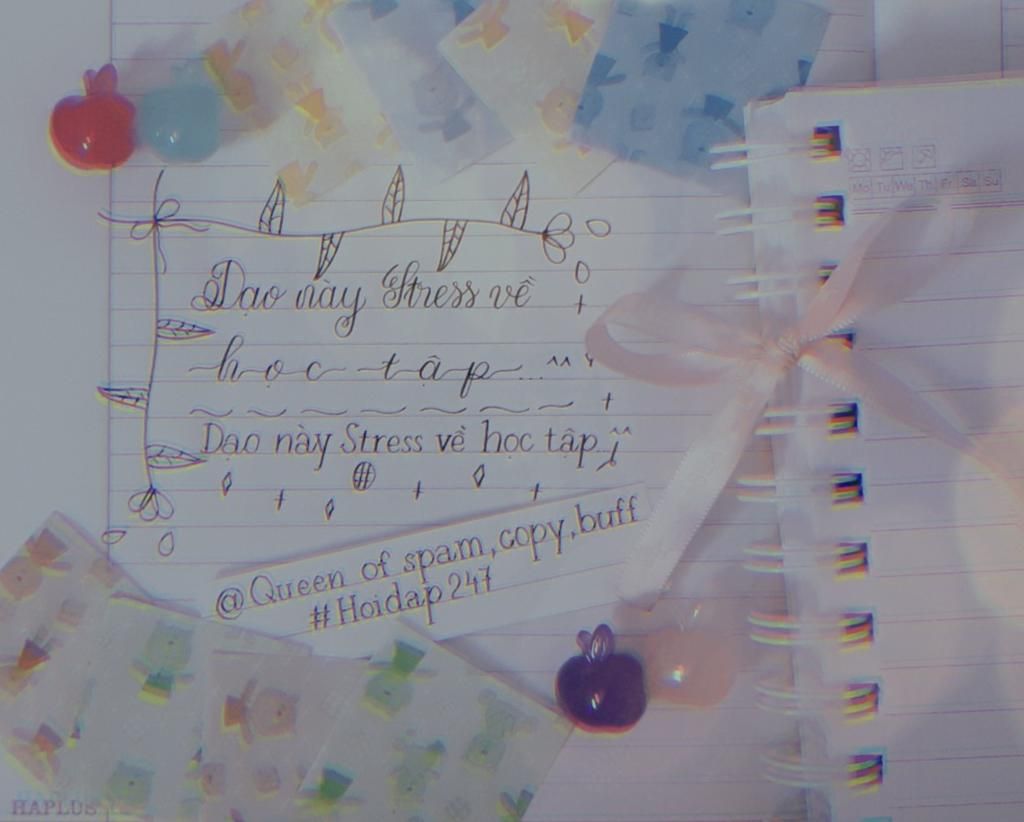 Dạo này Stress về
học tập...^^
Dạo này Stress về học tập ^^
@Queen of spam,copy,buff
#Hoidap247
Mo Tu We Th Fr Sa Su
HAPLUS